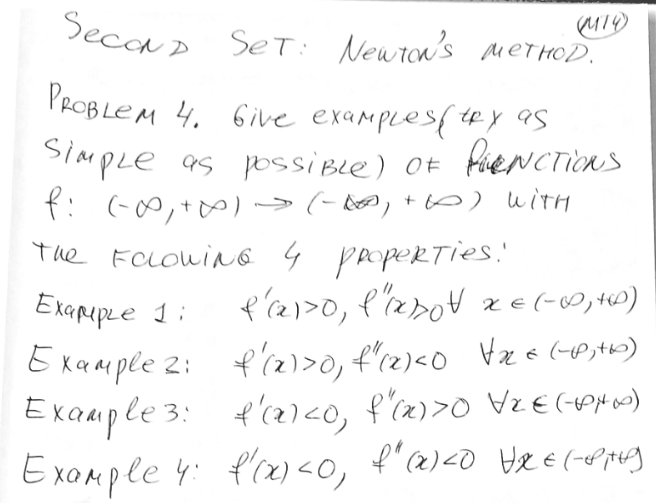 (M14)
SECOND SET: NEWTON'S METHOD.
PROBLEM 4. Give examples (try as
simple as possible) of functions
f: (-∞,+∞) → (-∞, +∞) with
the following 4 properties:
Example 1: f'(x)>0, f''(x)>0 ∀ x ∈ (-∞,+∞)
Example 2: f'(x)>0, f''(x)<0 ∀x ∈ (-∞,+∞)
Example 3: f'(x)<0, f''(x)>0 ∀x ∈ (-∞,+∞)
Example 4: f'(x)<0, f''(x)<0 ∀x ∈ (-∞,+∞)